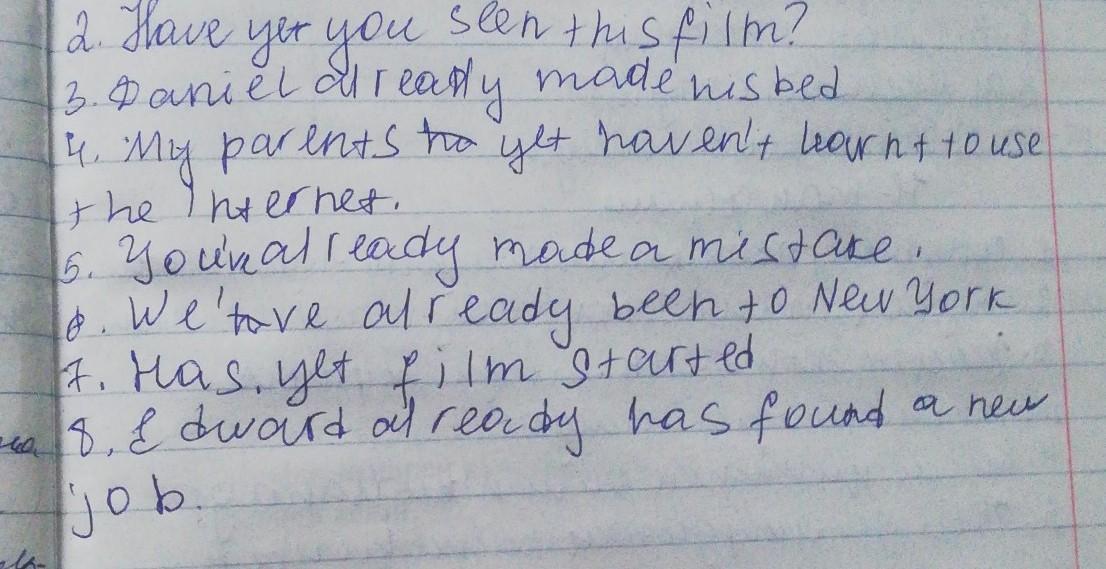 2. Have yet you seen this film?
3. Daniel already made his bed
4. My parents yet haven't learnt to use
the Internet.
5. already made a mistake.
6. We've already been to New York
7. Has yet film started
8. Edward already has found a new
job.